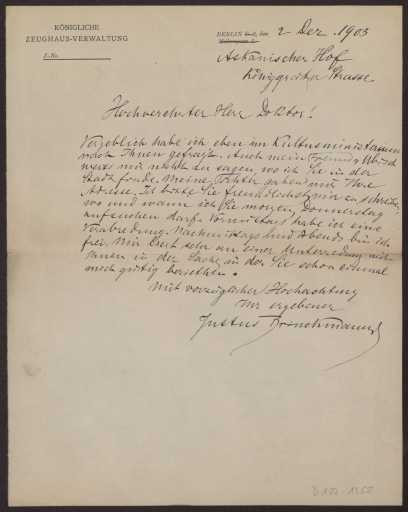 KÖNIGLICHE
ZEUGHAUS-VERWALTUNG
J.-No.
BERLIN den 2 Dez. 1903
Askanischer Hof
Königgrätzer Strasse
Hochverehrter Herr Doktor!
Vergeblich habe ich eben im Kultusministerium
nach Ihnen gefragt. Auch mein Freund
weiss mir nicht zu sagen, wo ich Sie in der
Stadt finde. Meine Tochter geben mir Ihre
Adresse. Ich bitte Sie freundlichst mir zu schreiben,
wo und wann ich Sie morgen, Donnerstag
aufsuchen darf. Vormittags habe ich eine
Verabredung. Nachmittags und Abends bin ich
frei. Mir liegt sehr an einer Unterredung mit
Ihnen in der Sache, in der Sie schon einmal
mich gütig berieten.
Mit vorzüglicher Hochachtung
Ihr ergebener
Justus Brinckmann